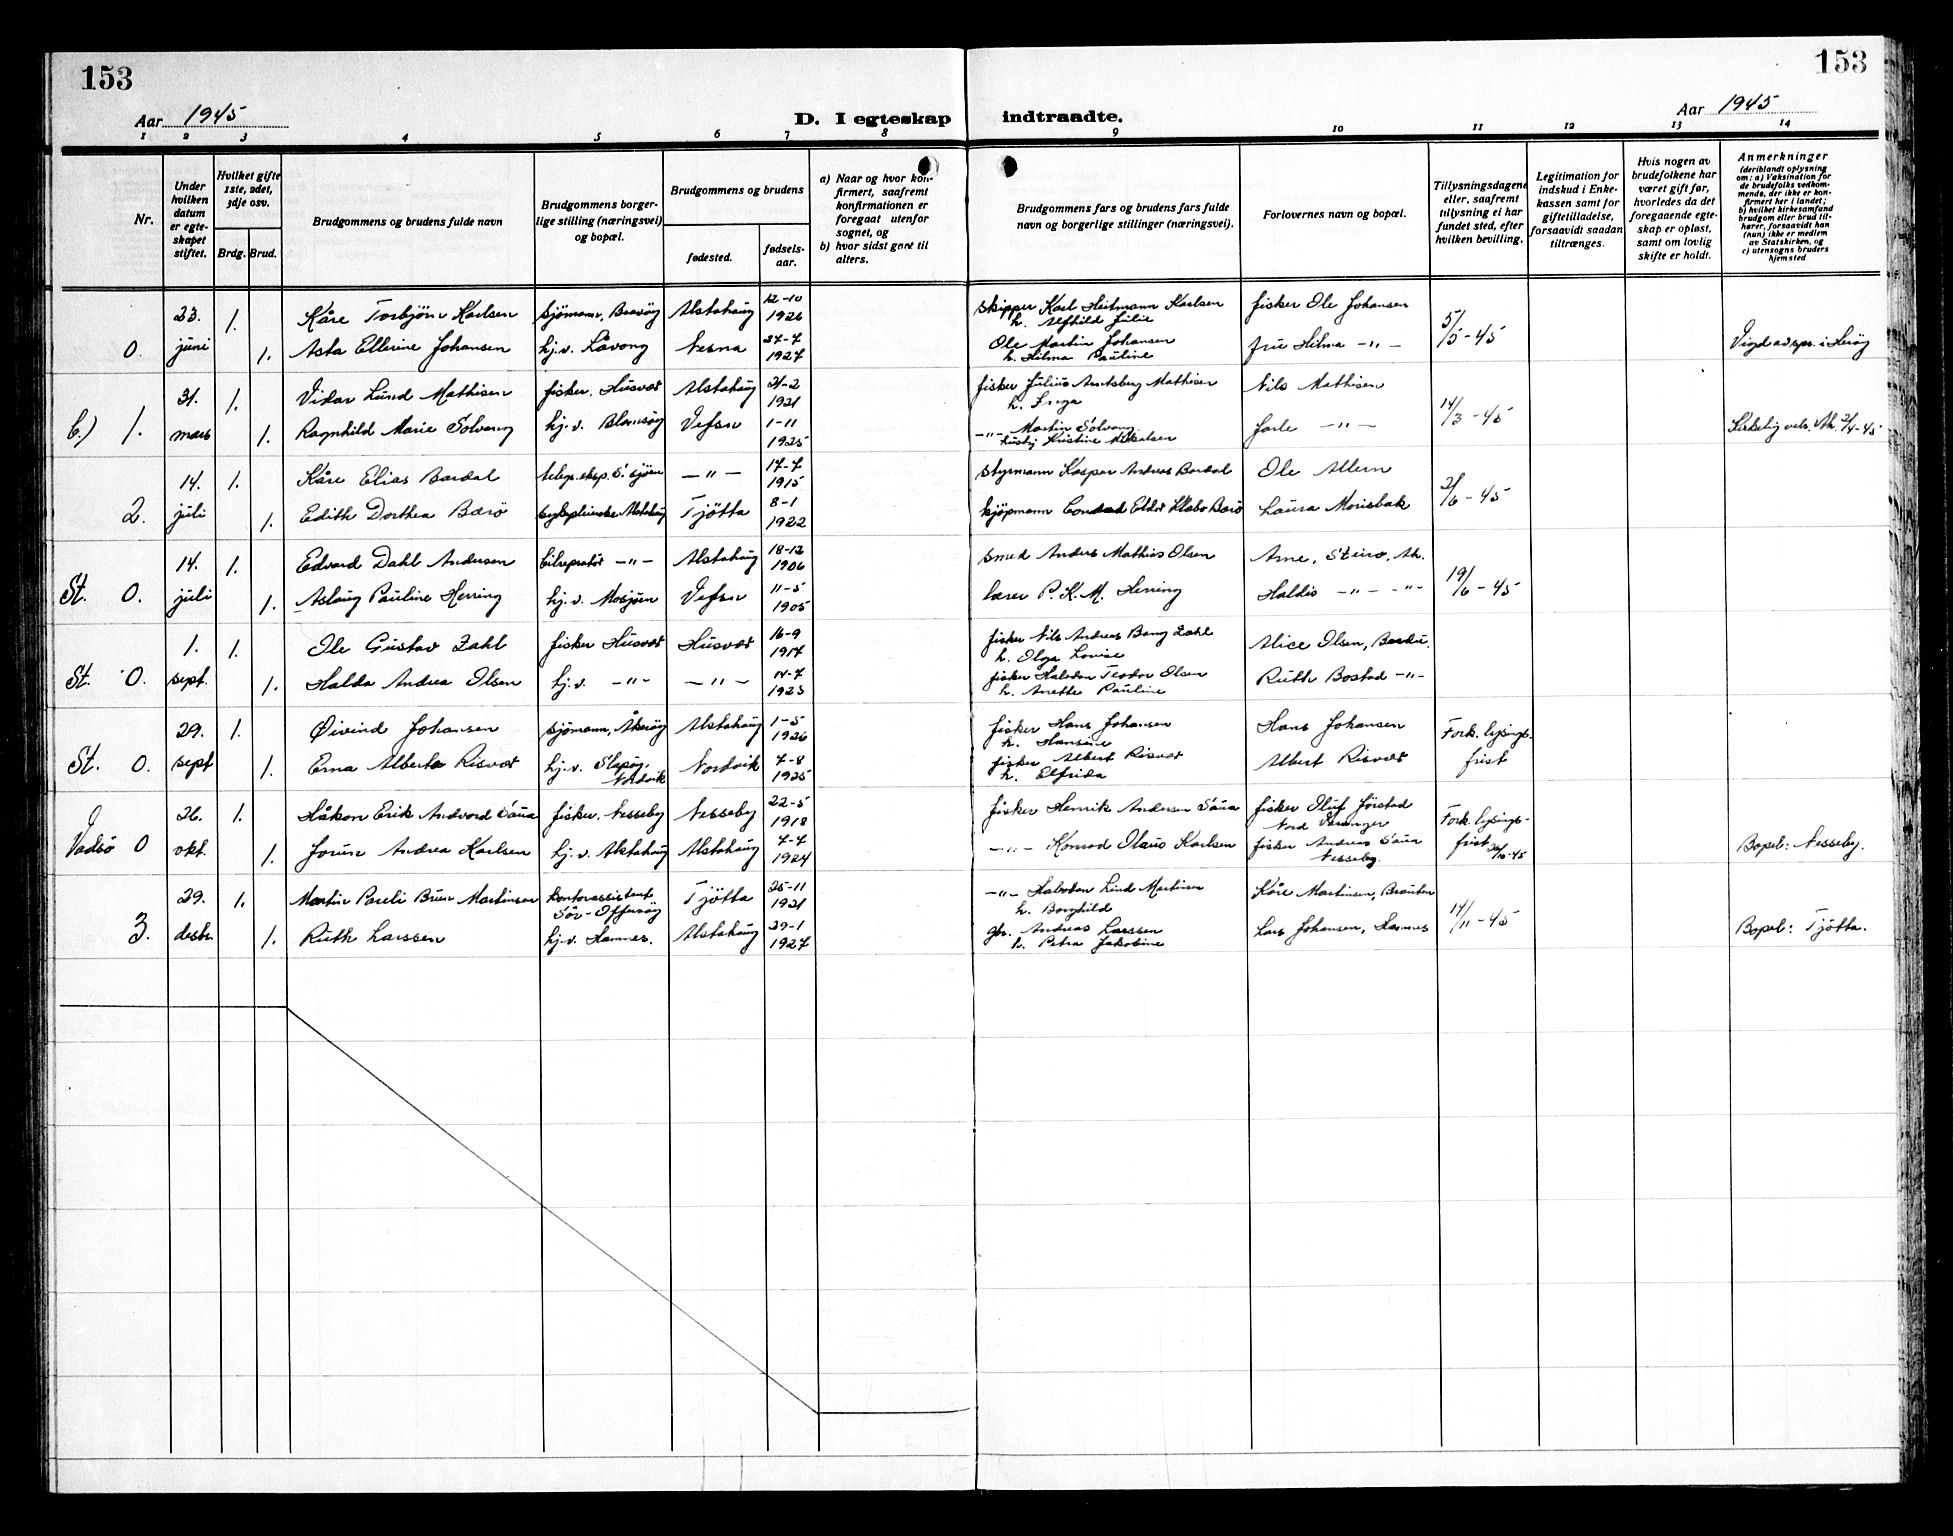 153
153
Aar 1945
D. I egteskap
indtraadte.
Aar 1945
1 2 3 4 5 6 7 8
9 10 11 12 13 14
Nr.
Under hvilken datum er egteskapet stiftet.
Hvilket gifte 1ste, 2det, 3dje osv.
Brdg. Brud.
Brudgommens og brudens fulde navn
Brudgommens borgerlige stilling (næringsvei) og bopæl.
Brudgommens og brudens
fødested.
fødselsaar.
a) Naar og hvor konfirmert, saafremt konfirmationen er foregaat utenfor sognet, og
b) hvor sidst gaat til alters.
Brudgommens fars og brudens fars fulde navn og borgerlige stillinger (næringsvei).
Forlovernes navn og bopæl.
Tillysningsdagene eller, saafremt tillysning ei har fundet sted, efter hvilken bevilling.
Legitimation for indskud i Enkekassen samt for giftetilladelse, forsaavidt saadan tiltrænges.
Hvis nogen av brudefolkene har været gift før, hvorledes da det foregaaende egteskap er opløst, samt om lovlig skifte er holdt.
Anmerkninger
(deriblandt oplysning om: a) Vaksination for de brudefolks vedkommende, der ikke er konfirmert her i landet; b) hvilket kirkesamfund brudgom eller brud tilhører, forsaavidt han (hun) ikke er medlem av Statskirken, og c) utensogns bruders hjemsted
23. 1. Kåre Torbjörn Karlsen sjömann, Alstahaug 12-10 1926 skipper Karl Heitmann Karlsen h. Alfhild Julie fisker Ole Johansen
0. juni 1. Asta Ellerine Johansen hj.v. Låvong Nesna 27-7 1927 Ole Martin Johansen h. Hilma Pauline fru Hilma -"- 5/5-45 Vigd av spr. i Heröy
31. 1. Vidar Lund Mathisen fisker. Husvær Alstahaug 21-2 1921 fisker Julius Mathisen h. Inga Nils Mathisen
b.) 1. mars 1. Ragnhild Marie Solvang hj.v. Blomsöy Vefsn 1-11 1925 -"- Martin Solvang Kristine Mikalsen Jarle -"- 14/3-45 Kirkelig vels. Ah. 2/4-45
14. 1. Kåre Elias Bardal S.sjöen -"- 17-7 1915 styrmann Kaspar Andreas Bardal Ole Allern
2. juli 1. Edith Dorthea Barö Alstahaug Tjötta 8-1 1922 kjöpmann Barö Laura Morisbak 2/6-45
14. 1. Edvard Dahl Andersen bilreparatör -"- Alstahaug 18-12 1906 smed Anders Mathias Olsen Arne, Ah.
St. 0. juli 1. Aslaug Pauline Herring hj.v. Mosjöen Vefsn 11-5 1905 lærer P. K. M. Herring Haldis -"- -"- 19/6-45
1. 1. Ole Gustav Zahl fisker Husvær Husvær 16-9 1917 fisker Nils Andreas Bang Zahl h. Olga Lovise Alice Olsen,
St. 0. sept. 1. Halda Andrea Olsen hj.v. -"- -"- 1923 fisker Halvdan Teodor Olsen h. Anette Pauline Ruth Bostad -"-
29. 1. Øivind Johansen sjömann, Åkeröy Alstahaug 1-5 1926 fisker Hans Johansen h. Hansine Hans Johansen Fork. lysings-
St. 0. sept 1. Erna Alberta Risvær hj.v. Slapöy, Nordvik Nordvik 7-8 1925 fisker Albert Risvær h. Elfrida Albert Risvær frist
26. 1. Håkon Erik Andvord Saua fisker. Nesseby Nesseby 22-5 1918 fisker Henrik Andersen Saua fisker Oluf Jörstad Nord Varanger Fork. lysings-
Vadsö 0 okt. 1. Jorun Andrea Karlsen hj.v. Alstahaug Alstahaug 7-7 1924 -"- Konrad Olaus Karlsen fisker Andreas Saua Nesseby. frist 26/10-45 Bopel: Nesseby.
29. 1. Martin Pareli Bruun Martinsen kontorassistent Sör-Offersöy Tjötta 25-11 1921 -"- Halvdan Lind Martinsen h. Borghild Kåre Martinsen,
3. desbr. 1. Ruth Larssen hj.v. Hamnes. Alstahaug 29-1 1927 gbr. Andreas Larssen h. Petra Jakobine Lars Johansen, Hamnes 14/11-45 Bopel: Tjötta.